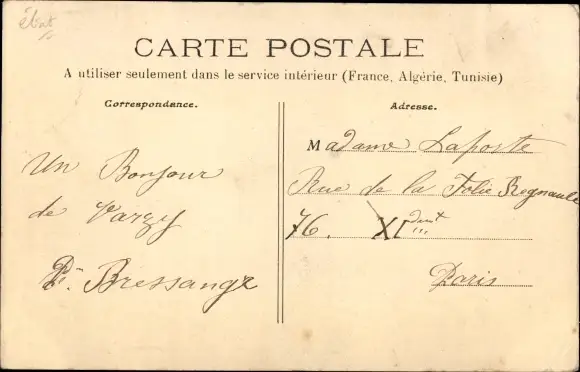 état
CARTE POSTALE
A utiliser seulement dans le service intérieur (France, Algérie, Tunisie)
Correspondance.
Un Bonjour
de Varzy
P. Bressange
Adresse.
Madame Laporte
Rue de la Folie Regnault
76. XI
Paris